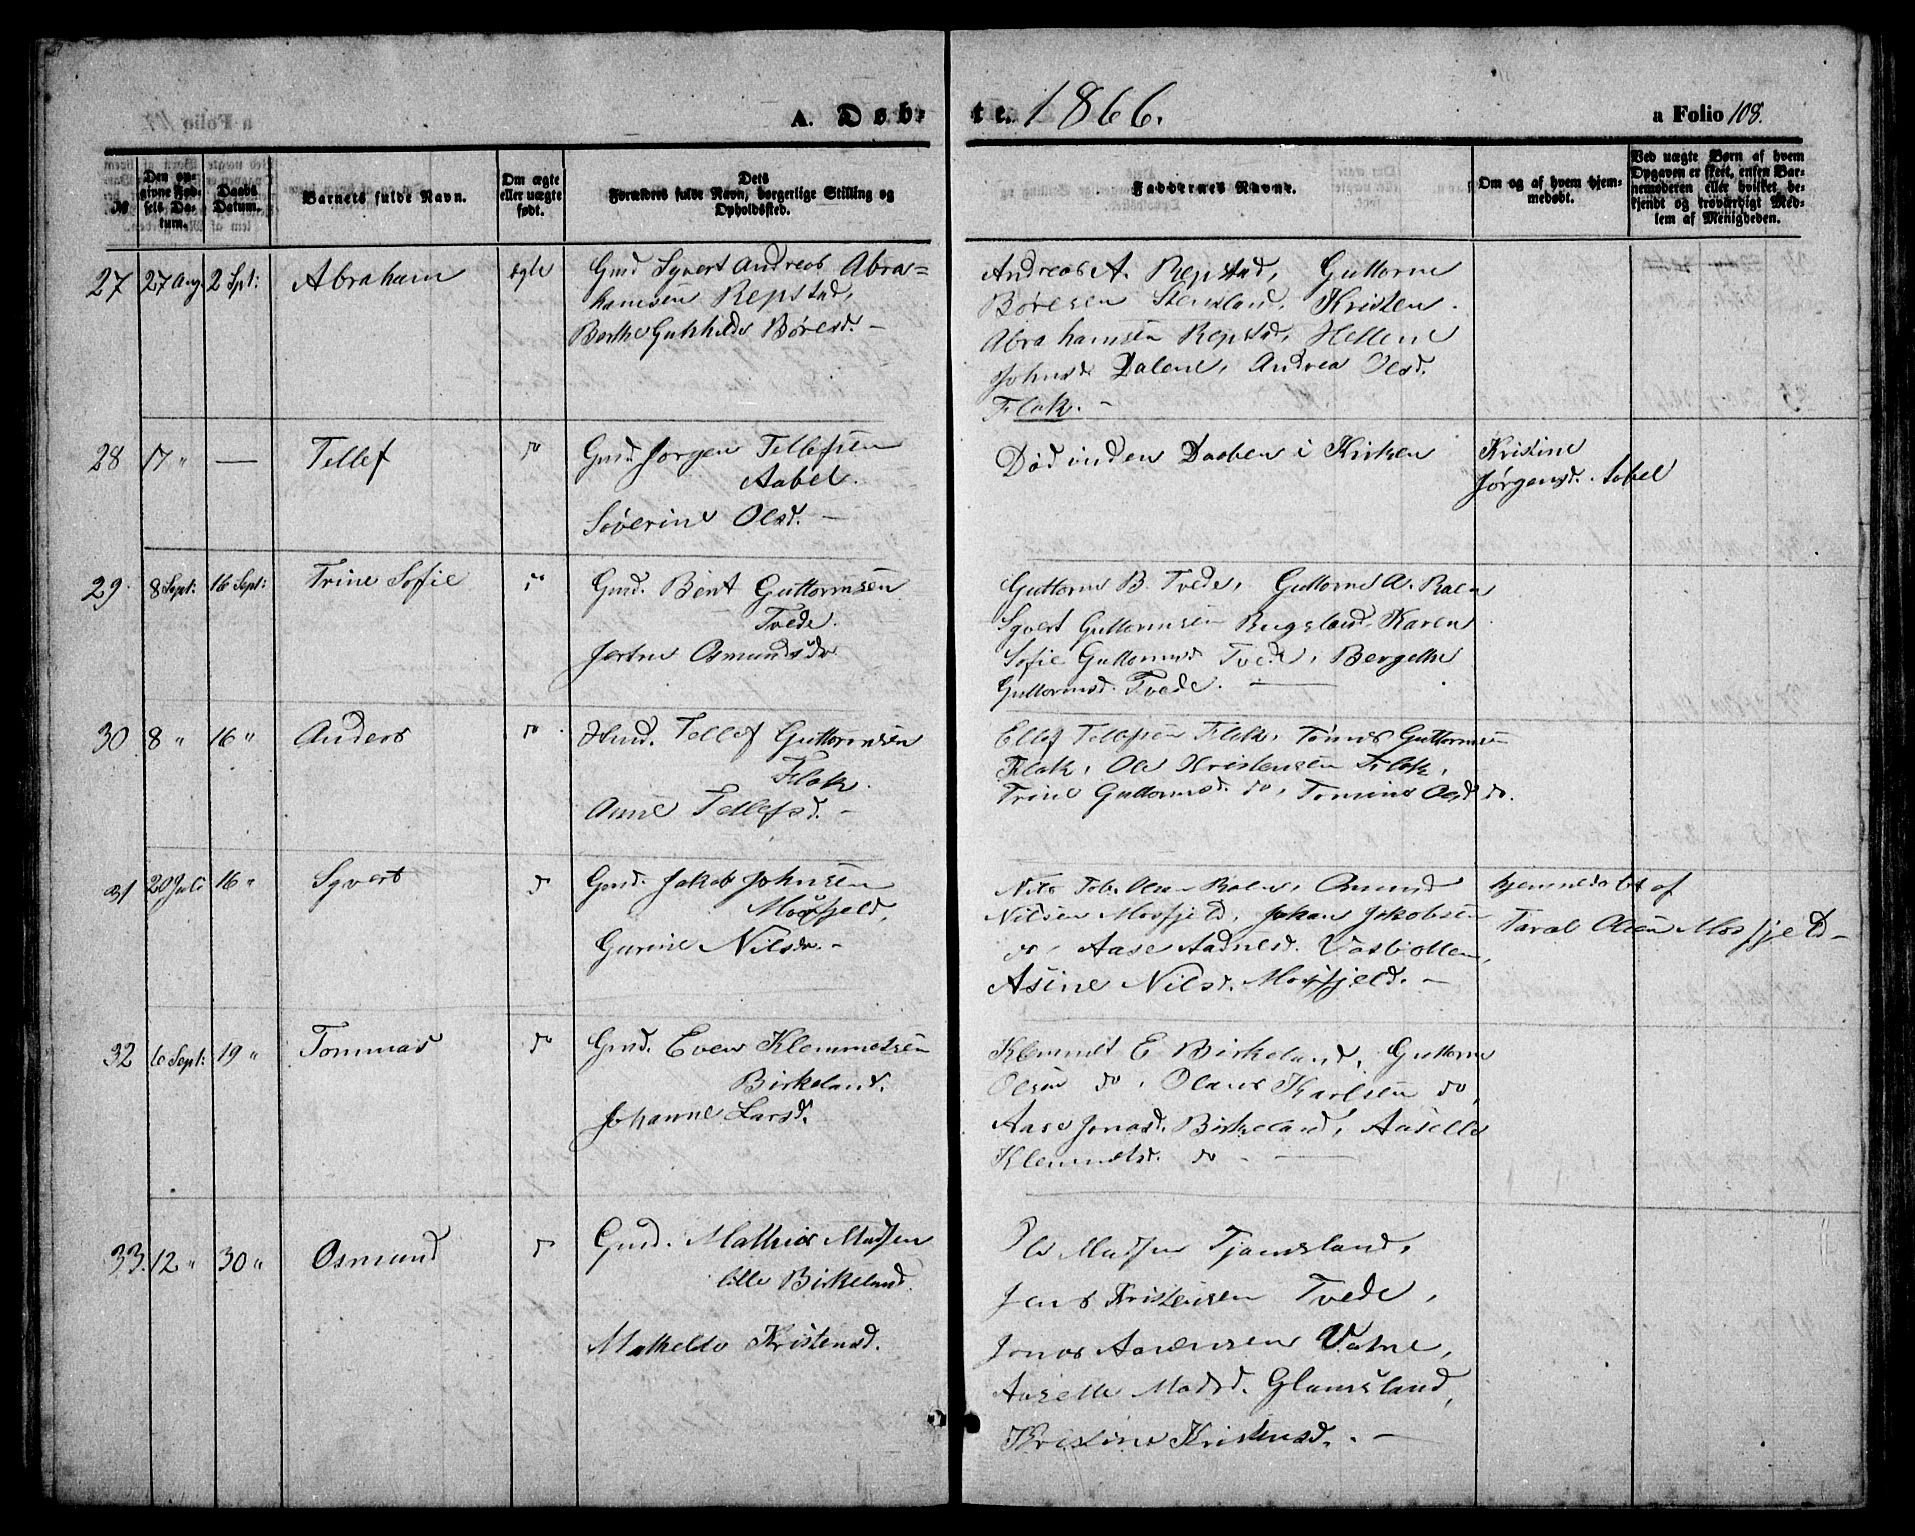 A. Døb- te. 1866. a Folio 108.
№
Den opgivne Fødsels Datum.
Daabs Datum.
Barnets fulde Navn.
Om ægte eller uægte født.
Dets Forældres fulde Navn, borgerlige Stilling og Opholdssted.
Faddernes Navne.
Om og af hvem hjemmedøbt.
Ved uægte Børn af hvem Opgaven er skeet, ensen Barnemoderen eller hvilket bekjendt og troværdigt Medlem af Menigheden.
27 27 Aug. 2 Spt: Abraham ægte Gmd Syvert Andreas Abra=
hamsen Repstad,
Berthe Gunhilde Børesd. –
Andreas A. Repstad, Guttorm
Børesen Stensland, Kristen
Abrahamsen Repstad, Hellene
Johnsd Dalene, Andrea Olsd.
Flak. –
28 17 " — Tellef do Gmd. Jørgen Tellefsen
Aabel.
Søverine Olsd. –
Død inden Daaben i Kirken
Kristine
Jørgensd. Aabel
29. 8 Sept: 16 Sept: Trine Sofie do Gmd. Bent Guttormsen
Tvede.
Jertru Osmundsdr.
Guttorm B. Tvede, Guttorm A. Roen
Syvert Guttormsen Rugsland, Karen
Sofie Guttormsd Tvede, Bergethe
Guttormsd. Tvede. —
30. 8 " 16 " Anders do Hmd. Tellef Guttormsen
Flak.
Anne Tellefsd. –
Ellef Tellefsen Flak, Tønnes Guttormsen
Flak, Ole Kristensen Flak,
Trine Guttormsd. do, Tomine Olsd do.
31 20 Juli 16 " Syvert do Gmd. Jakob Johnsen
Mosfjeld,
Gurine Nilsdr. –
Nils Tob. Osmund
Nilsen Mosfjeld, Johan Jakobsen
do, Aase Aadnesd.
Asine Nilsd. Mosfjeld. –
hjemmedøbt af
Taral Olsen Mosfjeld –
32 6 Sept: 19 " Tommas do Gmd. Even Klemmetsen
Birkeland.
Johanne Larsd.
Klemmet E Birkeland, Guttorm
Olsen do, Olaus Karlsen do,
Aase Jonasd. Birkeland, Aaselle
Klemmetsd. do – —
33. 12 " 30 " Osmund do Gmd. Mathias Madsen
lille Birkeland.
Mathelde Kristensd.
Ole Madsen Tjomsland,
Jens Kristensen Tvede,
Jonas Aanensen Vatne,
Aaselle Madsd. Glamsland,
Kristine Kristensd. . –